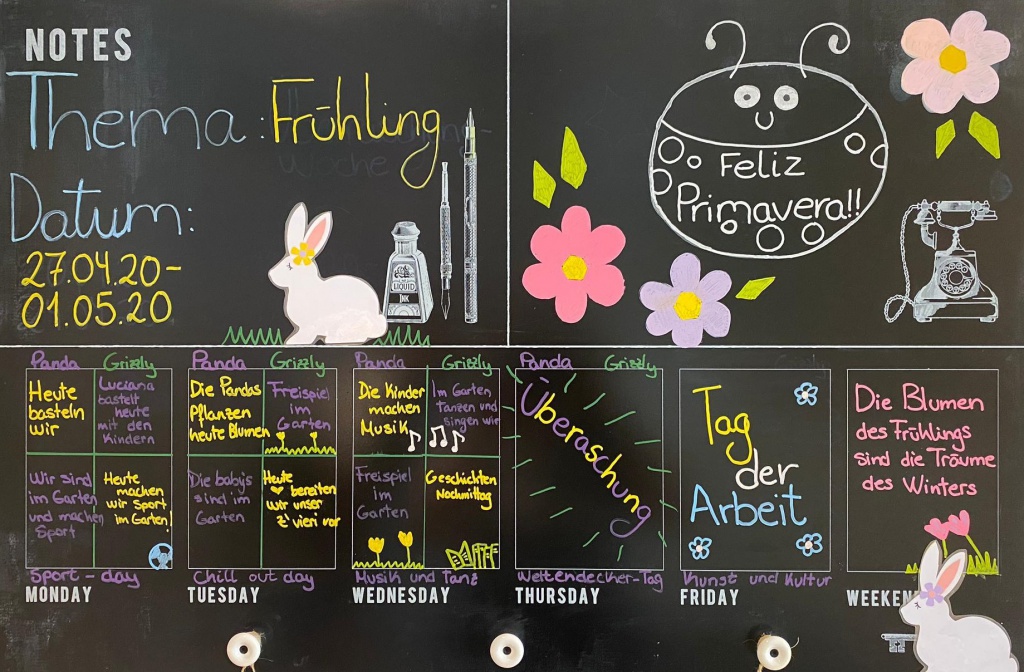 NOTES
Thema: Frühling
Datum:
27.04.20-
01.05.20
LIQUID
INK
Feliz
Primavera!!
Panda Grizzly
Heute
basteln
wir
Luciana
bastelt
heute
mit den
Kindern
Wir sind
im Garten
und machen
Sport
Heute
machen
wir Sport
im Garten!
Sport-day
MONDAY
Panda Grizzly
Die Pandas
Pflanzen
heute Blumen
Freispiel
im
Garten
Die baby's
sind im
Garten
Heute
bereiten
wir unser
z'vieri vor
Chill out day
TUESDAY
Panda Grizzly
Die Kinder
machen
Musik
Im Garten
Tanzen und
singen wir
Freispiel
im
Garten
Geschichten
Nachmittag
Musik und Tanz
WEDNESDAY
Panda Grizzly
Überaschung
Weltendecker-Tag
THURSDAY
Tag
der
Arbeit
Kunst und Kultur
FRIDAY
Die Blumen
des Frühlings
sind die Träume
des Winters
WEEKEN